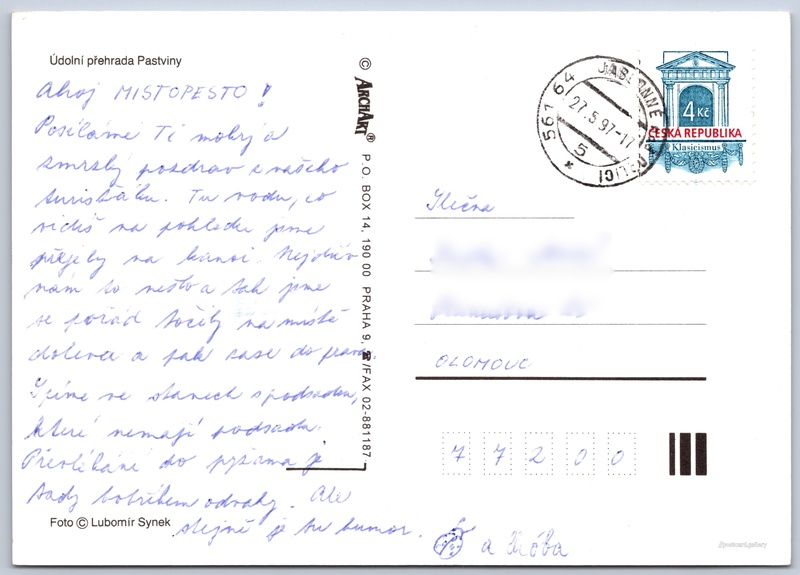 Údolní přehrada Pastviny
Ahoj MISTOPESTO!
Posíláme Ti mokrý a
zmrzlý pozdrav z našeho
turisťáku. Tu vodu, co
vidíš na pohledu jsme
přejely na kánoi. Nejdřív
nám to nešlo a tak jsme
se pořád točily na místě
doleva a pak zase do prava
Spíme ve stanech s podsadou,
které nemají podsadu.
Převlékání do pyžama je
tady kotrbem odvahy. Ale
stejně je tu humor.
a Króba
Foto © Lubomír Synek
© ARCHART® P.O. BOX 14, 190 00 PRAHA 9, ☎/FAX 02-881187
561 64 JABLONNÉ ORLICÍ
27.5.97-17
5
*
4 Kč
ČESKÁ REPUBLIKA
Klasicismus
Slečna
OLOMOUC
7 7 2 0 0